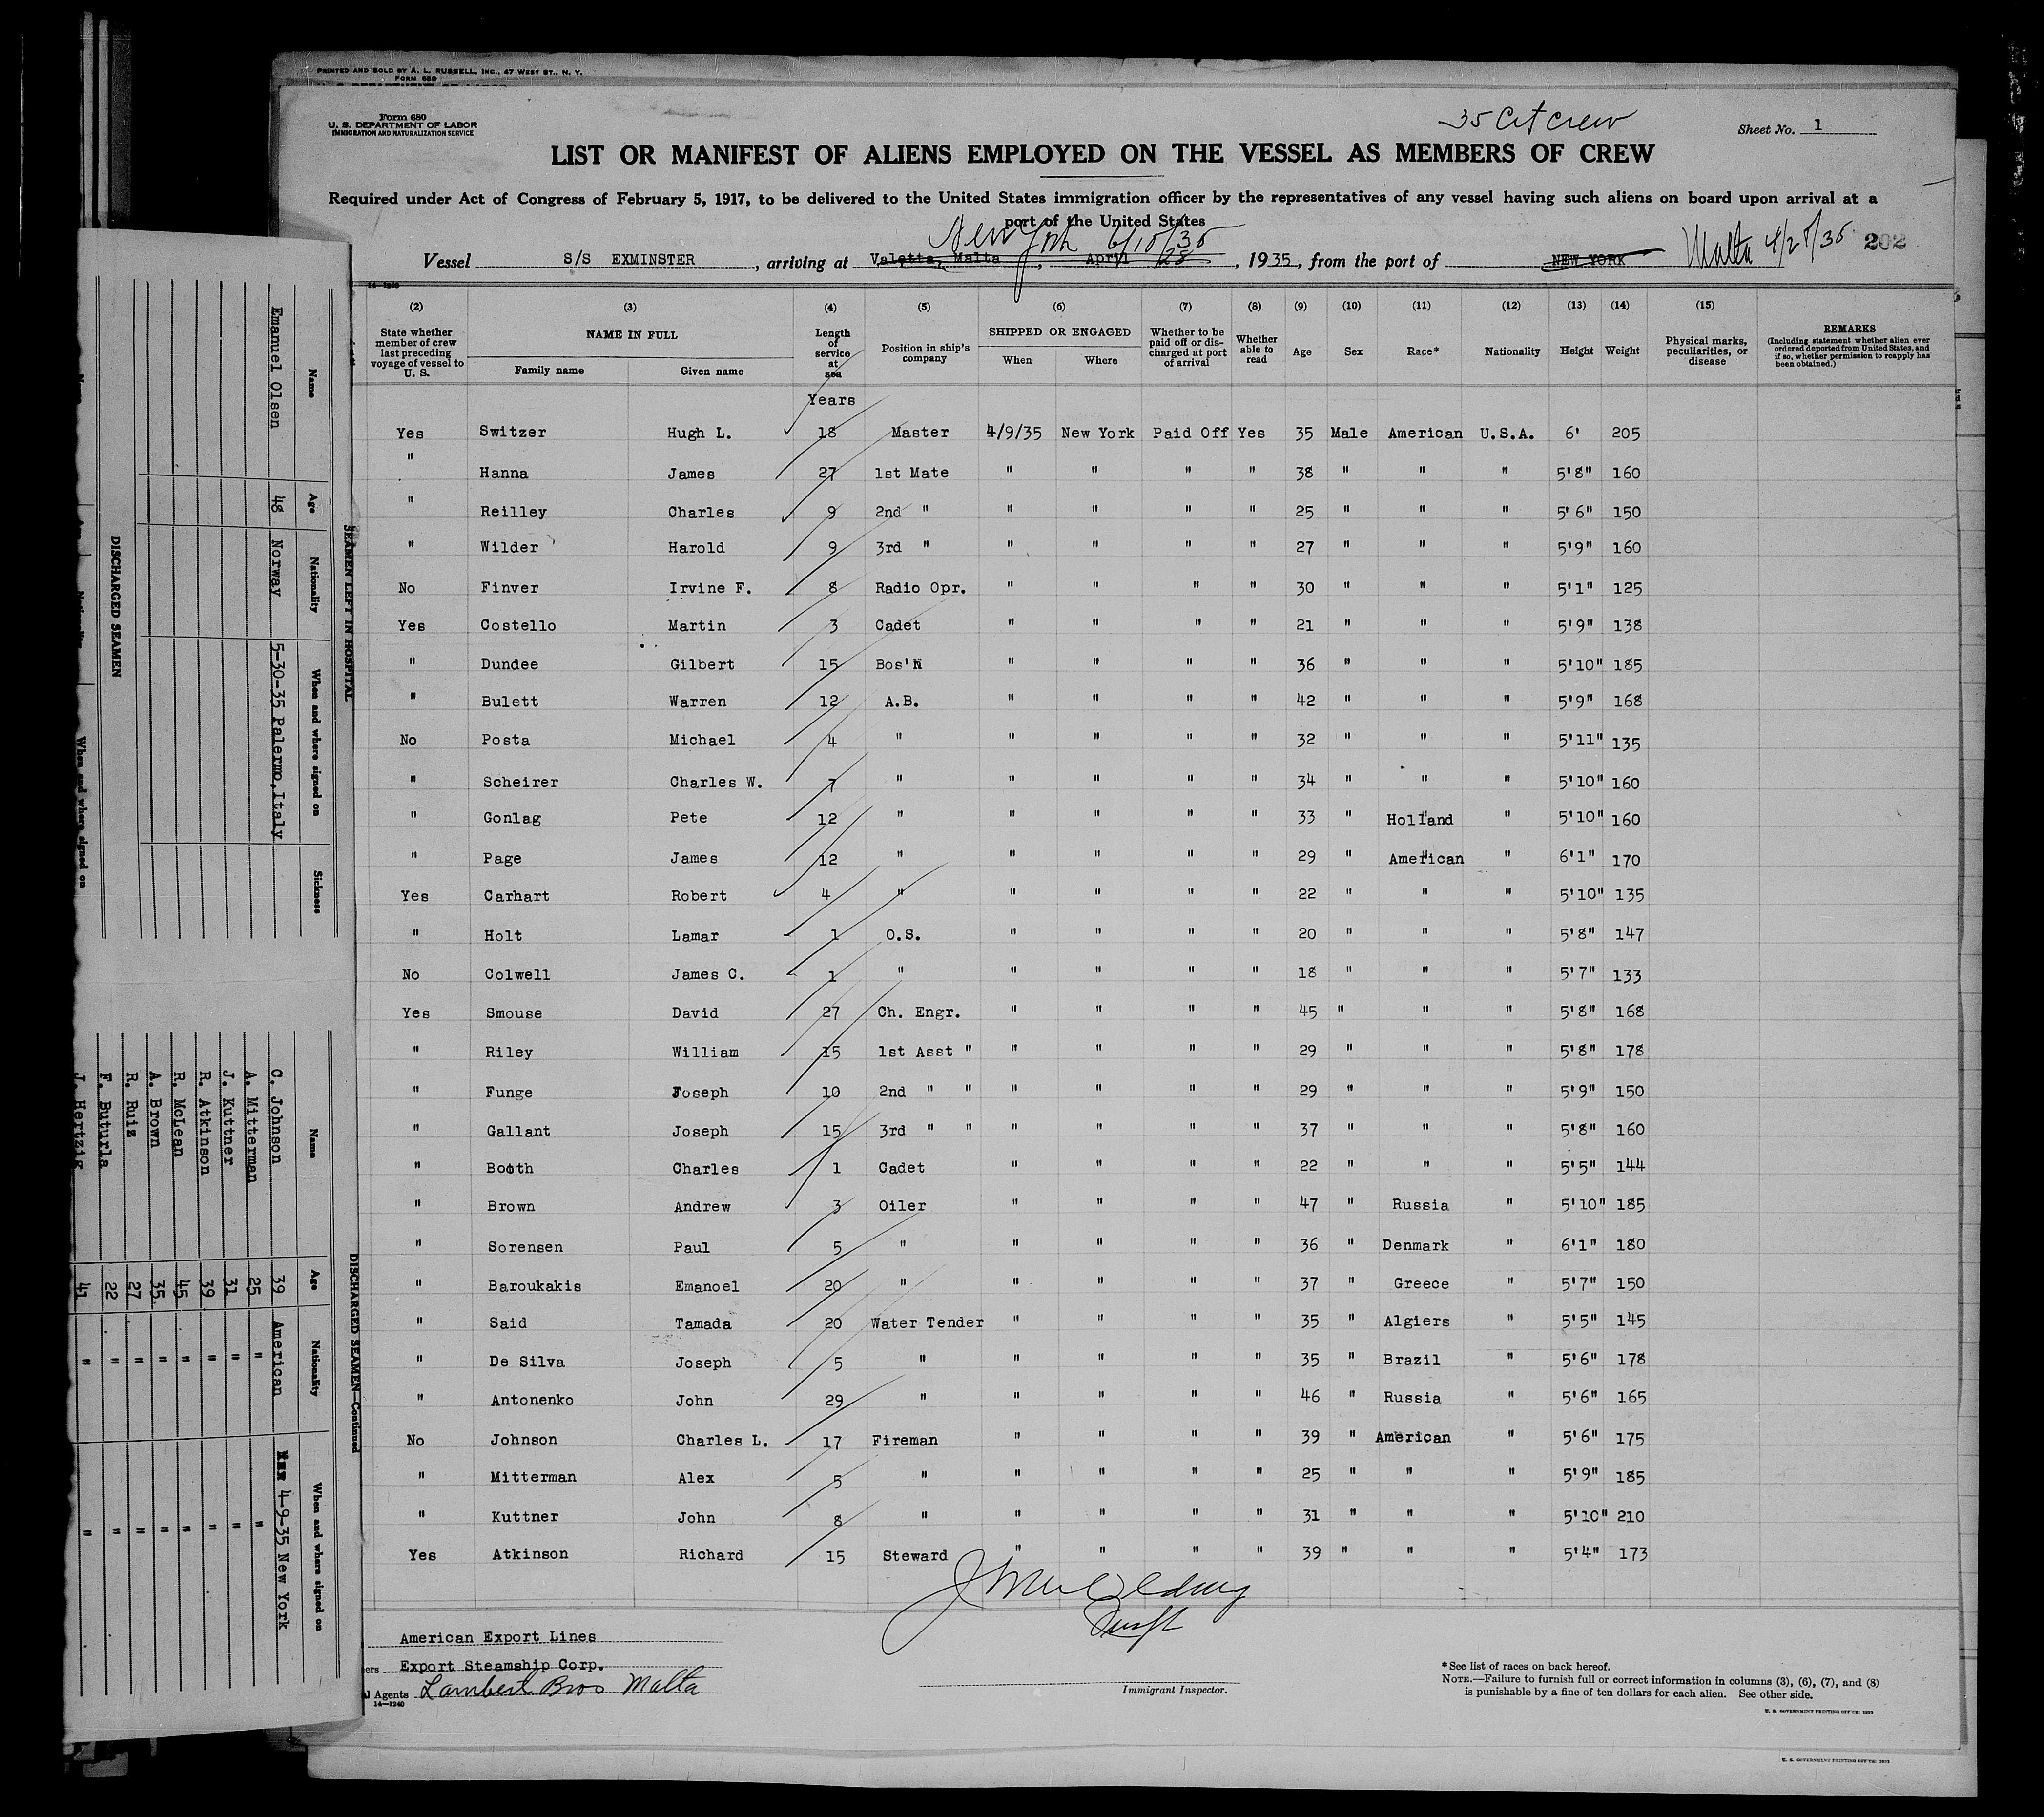 PRINTED AND SOLD BY A. L. RUSSELL, INC., 47 WEST ST., N. Y.
FORM 680
Form 680
U. S. DEPARTMENT OF LABOR
IMMIGRATION AND NATURALIZATION SERVICE
35 Cit Crew
Sheet No. 1
LIST OR MANIFEST OF ALIENS EMPLOYED ON THE VESSEL AS MEMBERS OF CREW
Required under Act of Congress of February 5, 1917, to be delivered to the United States immigration officer by the representatives of any vessel having such aliens on board upon arrival at a
port of the United States
New York 6/10/35
Vessel S/S EXMINSTER, arriving at Valetta, Malta, April 28, 1935, from the port of NEW YORK Malta 4/28/35 202
(2) (3) (4) (5) (6) (7) (8) (9) (10) (11) (12) (13) (14) (15)
State whether member of crew last preceding voyage of vessel to U. S. NAME IN FULL Family name Given name Length of service at sea Position in ship's company SHIPPED OR ENGAGED When Where Whether to be paid off or discharged at port of arrival Whether able to read Age Sex Race* Nationality Height Weight Physical marks, peculiarities, or disease REMARKS (Including statement whether alien ever ordered deported from United States, and if so, whether permission to reapply has been obtained.)
Years
Yes Switzer Hugh L. 18 Master 4/9/35 New York Paid Off Yes 35 Male American U.S.A. 6' 205
" Hanna James 27 1st Mate " " " " 38 " " " 5'8" 160
" Reilley Charles 9 2nd " " " " " 25 " " " 5'6" 150
" Wilder Harold 9 3rd " " " " " 27 " " " 5'9" 160
No Finver Irvine F. 8 Radio Opr. " " " " 30 " " " 5'1" 125
Yes Costello Martin 3 Cadet " " " " 21 " " " 5'9" 138
" Dundee Gilbert 15 Bos'N " " " " 36 " " " 5'10" 185
" Bulett Warren 12 A.B. " " " " 42 " " " 5'9" 168
No Posta Michael 4 " " " " " 32 " " " 5'11" 135
" Scheirer Charles W. 7 " " " " " 34 " " " 5'10" 160
" Gonlag Pete 12 " " " " " 33 " Holland " 5'10" 160
" Page James 12 " " " " " 29 " American " 6'1" 170
Yes Carhart Robert 4 " " " " " 22 " " " 5'10" 135
" Holt Lamar 1 O.S. " " " " 20 " " " 5'8" 147
No Colwell James C. 1 " " " " " 18 " " " 5'7" 133
Yes Smouse David 27 Ch. Engr. " " " " 45 " " " 5'8" 168
" Riley William 15 1st Asst " " " " " 29 " " " 5'8" 178
" Funge Joseph 10 2nd " " " " " " 29 " " " 5'9" 150
" Gallant Joseph 15 3rd " " " " " " 37 " " " 5'8" 160
" Booth Charles 1 Cadet " " " " 22 " " " 5'5" 144
" Brown Andrew 3 Oiler " " " " 47 " Russia " 5'10" 185
" Sorensen Paul 5 " " " " " 36 " Denmark " 6'1" 180
" Baroukakis Emanoel 20 " " " " " 37 " Greece " 5'7" 150
" Said Tamada 20 Water Tender " " " " 35 " Algiers " 5'5" 145
" De Silva Joseph 5 " " " " " 35 " Brazil " 5'6" 178
" Antonenko John 29 " " " " " 46 " Russia " 5'6" 165
No Johnson Charles L. 17 Fireman " " " " 39 " American " 5'6" 175
" Mitterman Alex 5 " " " " " 25 " " " 5'9" 185
" Kuttner John 8 " " " " " 31 " " " 5'10" 210
Yes Atkinson Richard 15 Steward " " " " 39 " " " 5'4" 173
American Export Lines
Export Steamship Corp.
l Agents Lambert Bros Malta
14—1240
Immigrant Inspector.
*See list of races on back hereof.
NOTE.—Failure to furnish full or correct information in columns (3), (6), (7), and (8)
is punishable by a fine of ten dollars for each alien. See other side.
U. S. GOVERNMENT PRINTING OFFICE: 1933
SEAMEN LEFT IN HOSPITAL
Name Age Nationality When and where signed on Sickness
Emanuel Olsen 48 Norway 5-30-35 Palermo, Italy
DISCHARGED SEAMEN
When and where signed on
DISCHARGED SEAMEN—Continued
Name Age Nationality When and where signed on
C. Johnson 39 American 4-9-35 New York
A. Mitterman 25 " "
J. Kuttner 31 " "
R. Atkinson 39 " "
R. McLean 45 " "
A. Brown 35 " "
R. Ruiz 27 " "
F. Buturla 22 " "
J. Hertzig 41 " "